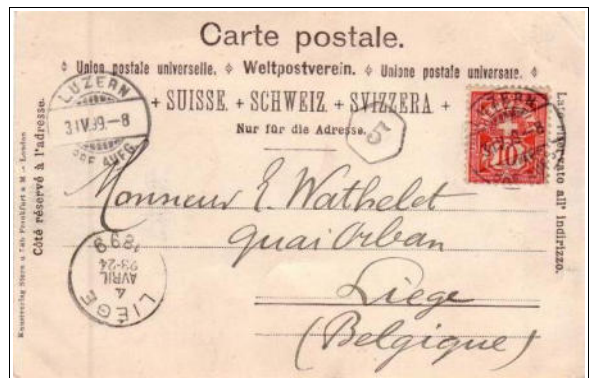 Carte postale.
Union postale universelle. Weltpostverein. Unione postale universale.
+ SUISSE. + SCHWEIZ. + SVIZZERA +
Nur für die Adresse.
LUZERN
3.IV.99.-8
BRF. AUFG.
5
10
Côté réservé à l'adresse.
Lato riservato all' indirizzo.
Monsieur E. Wathelet
Quai Orban
Liège
(Belgique)
LIÈGE
4
AVRIL
23-24
1899
Kunstverlag Frankfurt a M. - London